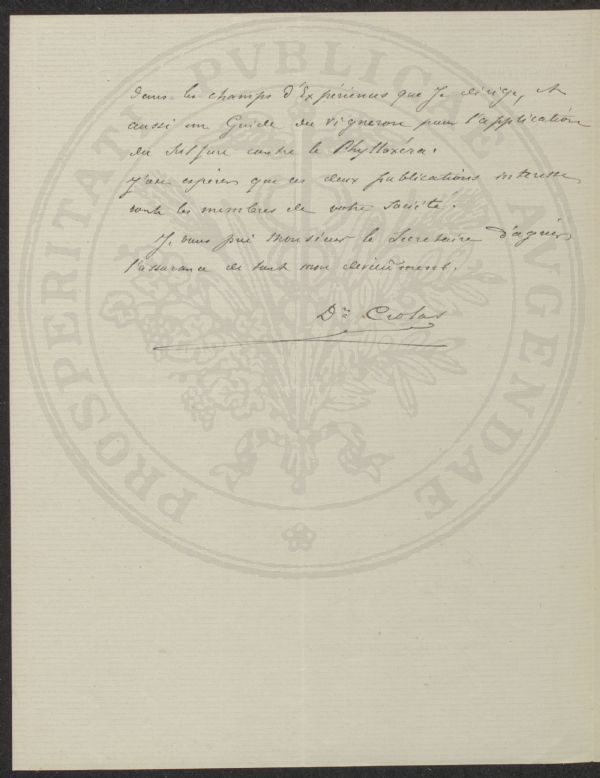 dans les champs d'Expériences que Je dirige, et
aussi un Guide du vigneron pour l'application
du Sulfure contre le Phylloxéra.
J'ose espérer que ces deux publications interesse
ront les membres de votre Société.
Je vous prie Monsieur le Secretaire d'agréer
l'assurance de tout mon dévoûment.
Dr Crolas
PROSPERITATI PVBLICAE AVGENDAE